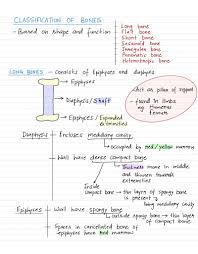 CLASSIFICATION OF BONES
- Based on shape and function
Long bone
Flat bone
Short bone
Sesamoid bone
Irregular bone
Pneumatic bone
Heterotropic bone
LONG BONES - consists of Epiphyses and diaphysis
Epiphyses
Diaphysis / Shaft
Epiphyses / Expanded extremities
Act as pillar of support
found in limbs
Humerus
Femurs
Diaphysis - Encloses medullary cavity
occupied by red/yellow marrow
- Wall have dense compact bone
thickness more in middle and thinner towards extremities
Inside compact bone
thin layer of spongy bone is present
lining medullary cavity
Epiphyses - Wall have spongy bone
outside spongy bone → thin layer of compact bone
- Spaces in cancellated bone of epiphyses have red marrow